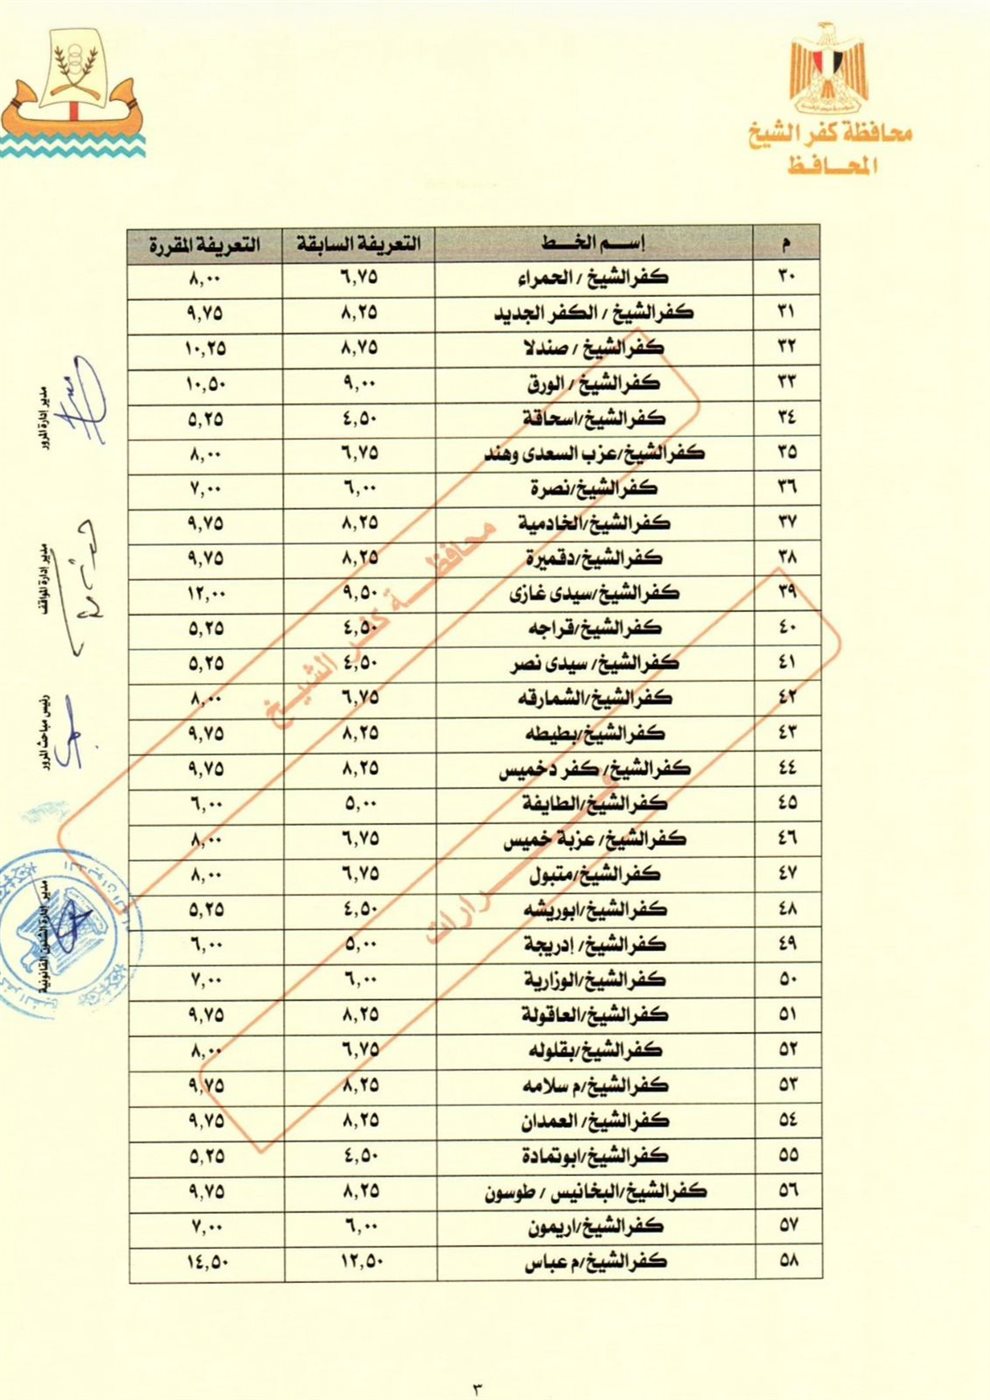 محافظة كفر الشيخ
المحافظ
م إسم الخط التعريفة السابقة التعريفة المقررة
٣٠ كفرالشيخ / الحمراء ٦,٧٥ ٨,٠٠
٣١ كفرالشيخ / الكفر الجديد ٨,٢٥ ٩,٧٥
٣٢ كفرالشيخ / صندلا ٨,٧٥ ١٠,٢٥
٣٣ كفرالشيخ / الورق ٩,٠٠ ١٠,٥٠
٣٤ كفرالشيخ/اسحاقة ٤,٥٠ ٥,٢٥
٣٥ كفرالشيخ/عزب السعدى وهند ٦,٧٥ ٨,٠٠
٣٦ كفرالشيخ/نصرة ٦,٠٠ ٧,٠٠
٣٧ كفرالشيخ/الخادمية ٨,٢٥ ٩,٧٥
٣٨ كفرالشيخ/دقميرة ٨,٢٥ ٩,٧٥
٣٩ كفرالشيخ/سيدى غازى ٩,٥٠ ١٢,٠٠
٤٠ كفرالشيخ/قراجه ٤,٥٠ ٥,٢٥
٤١ كفرالشيخ/ سيدى نصر ٤,٥٠ ٥,٢٥
٤٢ كفرالشيخ/الشمارقه ٦,٧٥ ٨,٠٠
٤٣ كفرالشيخ/بطيطه ٨,٢٥ ٩,٧٥
٤٤ كفرالشيخ/ كفر دخميس ٨,٢٥ ٩,٧٥
٤٥ كفرالشيخ/الطايفة ٥,٠٠ ٦,٠٠
٤٦ كفرالشيخ/ عزبة خميس ٦,٧٥ ٨,٠٠
٤٧ كفرالشيخ/متبول ٦,٧٥ ٨,٠٠
٤٨ كفرالشيخ/ابوريشه ٤,٥٠ ٥,٢٥
٤٩ كفرالشيخ/ إدريجة ٥,٠٠ ٦,٠٠
٥٠ كفرالشيخ/الوزارية ٦,٠٠ ٧,٠٠
٥١ كفرالشيخ/العاقولة ٨,٢٥ ٩,٧٥
٥٢ كفرالشيخ/بقلوله ٦,٧٥ ٨,٠٠
٥٣ كفرالشيخ/م سلامه ٨,٢٥ ٩,٧٥
٥٤ كفرالشيخ/ العمدان ٨,٢٥ ٩,٧٥
٥٥ كفرالشيخ/ابوتمادة ٤,٥٠ ٥,٢٥
٥٦ كفرالشيخ/البخانيس / طوسون ٨,٢٥ ٩,٧٥
٥٧ كفرالشيخ/اريمون ٦,٠٠ ٧,٠٠
٥٨ كفرالشيخ/م عباس ١٢,٥٠ ١٤,٥٠
محافظة كفر الشيخ
مدير إدارة المرور
مدير إدارة المواقف
رئيس مباحث المرور
مدير إدارة الشئون القانونية
٣